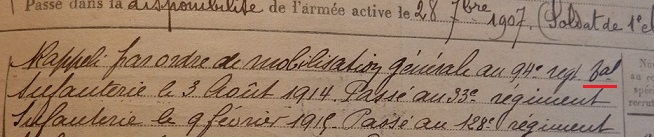 Passé dans la disponibilité de l'armée active le 28 7bre 1907. (Soldat de 1e cl
Rappelé par ordre de mobilisation générale au 94e regt
Infanterie le 3 Août 1914. Passé au 33e régiment
Infanterie le 9 février 1915. Passé au 128e régiment